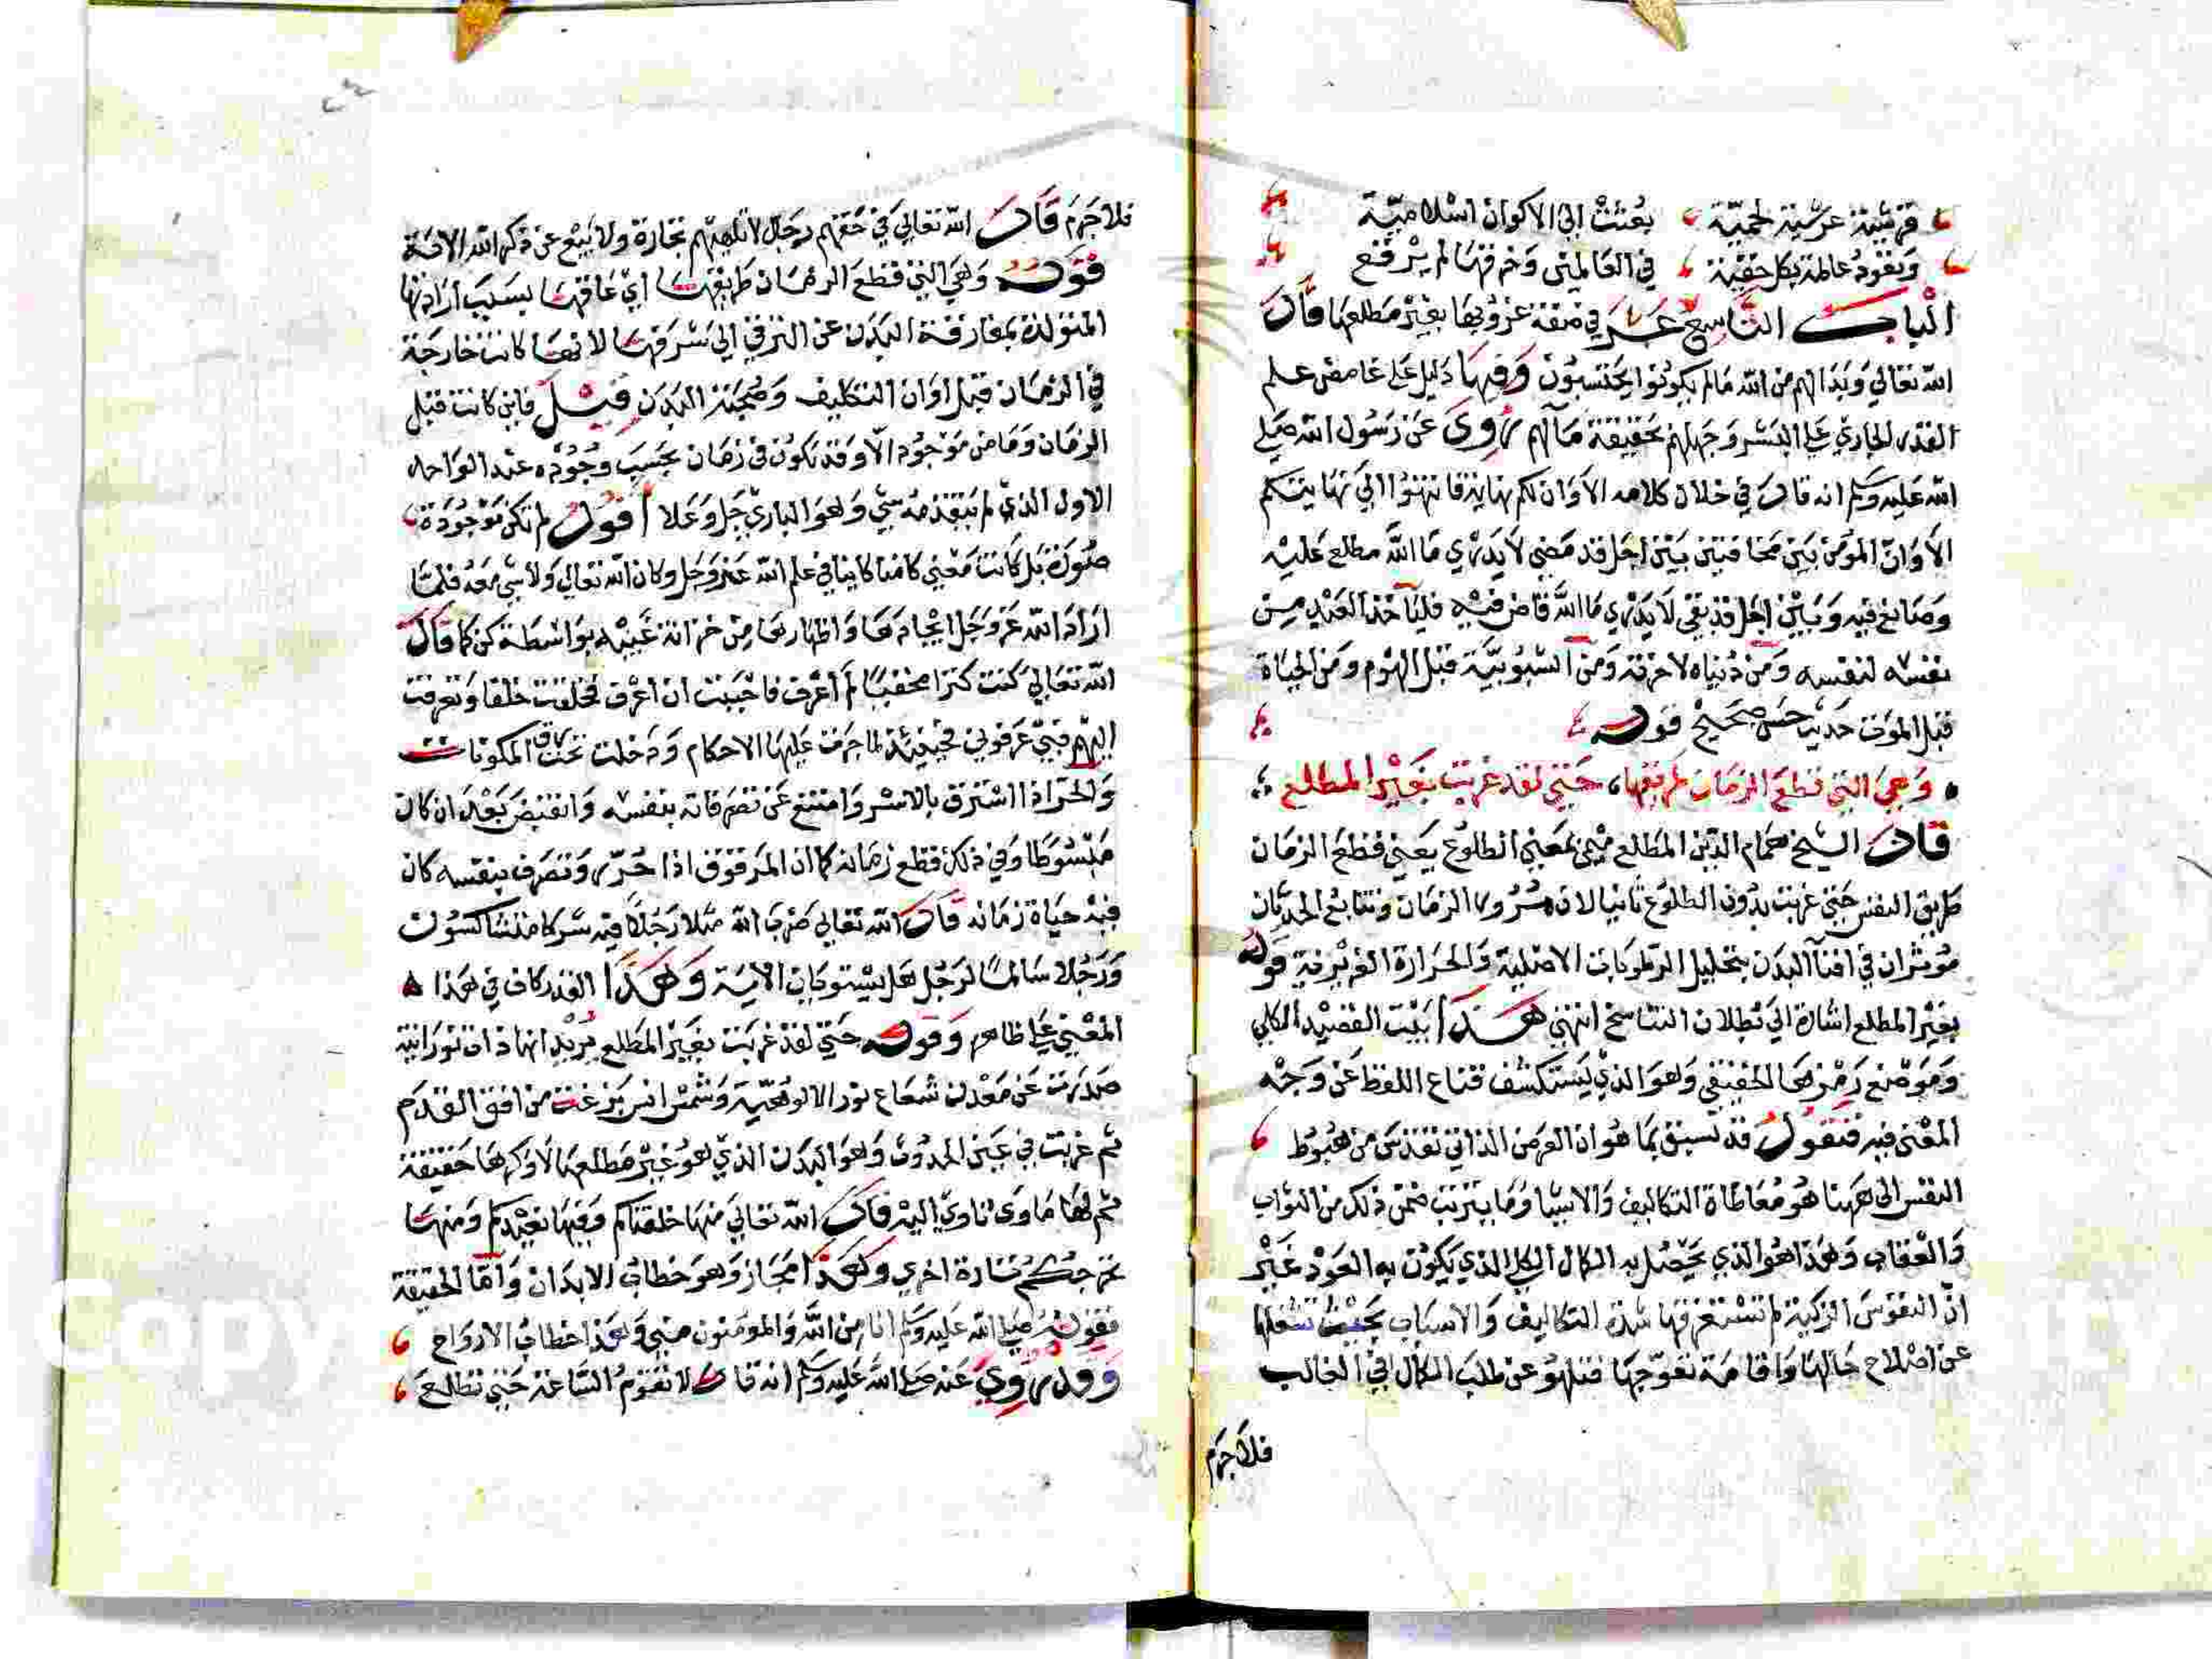 قرشية عرشية لحميّة بُعثتْ الى الاكوان اسْلاميّة
وَتعُودُ عالمة بكل حقيّة في العالمين وَخرقها لم يرْقع
الْباب التّاسع عشر في صفة غروبها بغيْر مَطلعها قال
الله تعالي وَبدَا لهم من الله مَا لم يكونوا يحتسبُون وَفيها دَليل علي غامض علم
القدر الجاري علي البشر وَجهلهم بحقيقة مآلهم رُوى عَن رَسُول الله صَلي
الله عَليه وَسلم انه قال في خلال كلامه الاَوَان لكم نهاية فانتهُوا الي نهايتكم
الاَوَانّ المؤمن بَين مخافتين بيْن اجَل قد مَضي لاَ يَدْري مَا الله مطلع عَليْه
وَصَانع فيه وَبَيْن اجَل قد بَقي لاَ يَدْري مَا الله قاض فيْه فليَاخذ العَبْد مِن
نفسْه لنفسه وَمن دُنياه لاخرته وَمن الشبُوبيَّة قبْل الهرم وَمن الحياة
قبْل الموَت حَديث حسَن صَحيْح قوله
وَهيَ التي قطعَ الزمان طريقها، حَتي لقد غربت بغيْر المطلع
قال الشيخ همَام الدّين المطَلع ميمي بمعَني الطلوُع يَعني قطعَ الزمَان
طريق النفس حَتي غربت بدُون الطلوُع ثانيا لان مُرُور الزمَان وَتتابعُ الحدثان
مُوَثران في افنآ البَدَن بتحليل الرّطوَبات الاصْلية وَالحرَارة الغريزية قوله
بغيْر المطلع اشارة الي بُطلان التناسخ انتهي هَذا بَيْت القصيْد الكلي
وَمَوضع رَمْزها الحقيقي وَهوَ الذي يَستكشف قناع اللفظ عَن وَجْه
المعْني فيه فنقول قد سَبق بمَا هوَ ان الغرَض الذاتي تقدس من هبُوط
النفس الى ههنا هُو مُعَاطاة التكاليف وَالاشيا وَمَا يترتب ضمْن ذلك من الثوَاب
وَالعْقاب وَهَذا هُوَ الذي يَحْصُل به الكمَال الكلي الذي يَكوُن به العَوْد غَيْر
انّ النفوُسَ الزكيَّة لم تسْتغرقها شدة التكاليف وَالاسبَاب بحَيْث تشْغلها
عن اصْلاح حَالها وَاقامَة تعوّجها فتلهُو عن طلبَ الكمَال في الغالب
فلاَجرَم
فلاَجَرَم قال الله تعَالي في حَقهم رجَال لاَ تلهيهم تجَارة وَلا بَيْع عن ذكر الله الاية
قوله وَهيَ التي قطعَ الزمَان طريقهَا ايْ عَاقهَا بسَبب ارَادتها
المتوَلدة بمفارقة البَدَن عن الترقي الي شرَقها لانهَا كانت خارجَة
في الزمَان قبْل اوَان التكليف وَصُحبَة البَدَن قيْل فاين كانت قبْل
الزمَان وَمَا من مَوْجُود الاّ وَقد تكوُن في زمَان بحَسَب وجُوْده عند الوَاحد
الاول الذي لم يَتقدمه شي وَهوَ الباري جَل وَعَلا أقول لم تكن مَوْجُودَة
صُورَة بَل كَانت مَعْني كامنا كاينا في علم الله عَز وَجَل وَكان الله تعَالي وَلا شي معَهُ فلمَّا
ارَادَ الله عَز وَجَل ايجَادهَا وَاظهارهَا مِن خزانة غَيْبه بوَاسطة كن كما قَالَ
الله تعَالي كنت كنزا مخفيًا لم اُعْرَف فاحْبَبت ان اعْرف فخلقت خلقا وَتعرفت
اليْهم فبي عَرفوني فحِينئذ لما جرَت عَليها الاحكام وَدَخلت تحت رق المكوّنات
وَالحرّ اذا اسْترَق بالاسْر وَامتنع عَن تصرّفاته بنفسْه وَانقبض بَعْد ان كان
مَبْسُوطا وَفي ذلك قطع زمَانه كما ان المرَقوُق اذا حُرّر وَتصَرف بنفسه كان
فيْه حيَاة زمَانه قال الله تعَالي ضرَبَ الله مثلا رَجُلاً فيه شرَكا متشاكسُون
وَرَجُلا سَالمًا لرَجُل هَل يسْتوَيان الاية وَهَذا القدر كاف في هَذا
المعْني عَلي ظاهره وَقوله حَتي لقدْ غربَت بغَيْر المطَلع يُريْد انها ذات نوْرَانية
صَدَرت عَن مَعْدن شعَاع نوْر الالوُهيّة وَشمْس انس بَزغت من افق القدَم
ثم غربَت في عَين المدون وَهوَ البَدَن الذي هُوَ غيْر مَطلعهَا لاَ وَكرهَا حَقيقة
ثم لهَا مَاوَى تاوي اليْه قال الله تعَالي منهَا خلقناكم وَفيهَا نعيْدكم وَمنهَا
نخرجكُم تارة اخري وَهَذا مَجَاز وَهوَ خطابُ الابدَان وَامّا الحقيقة
فقوله صَلي الله عَليه وَسَلم انا من الله وَالموُمنون مني وَهَذا خطابُ الارْوَاح
وَقد رُوي عَنه صَلي الله عَليه وَسَلم انه قال لا تقوْمُ السَّاعَة حَتي تطلعَ